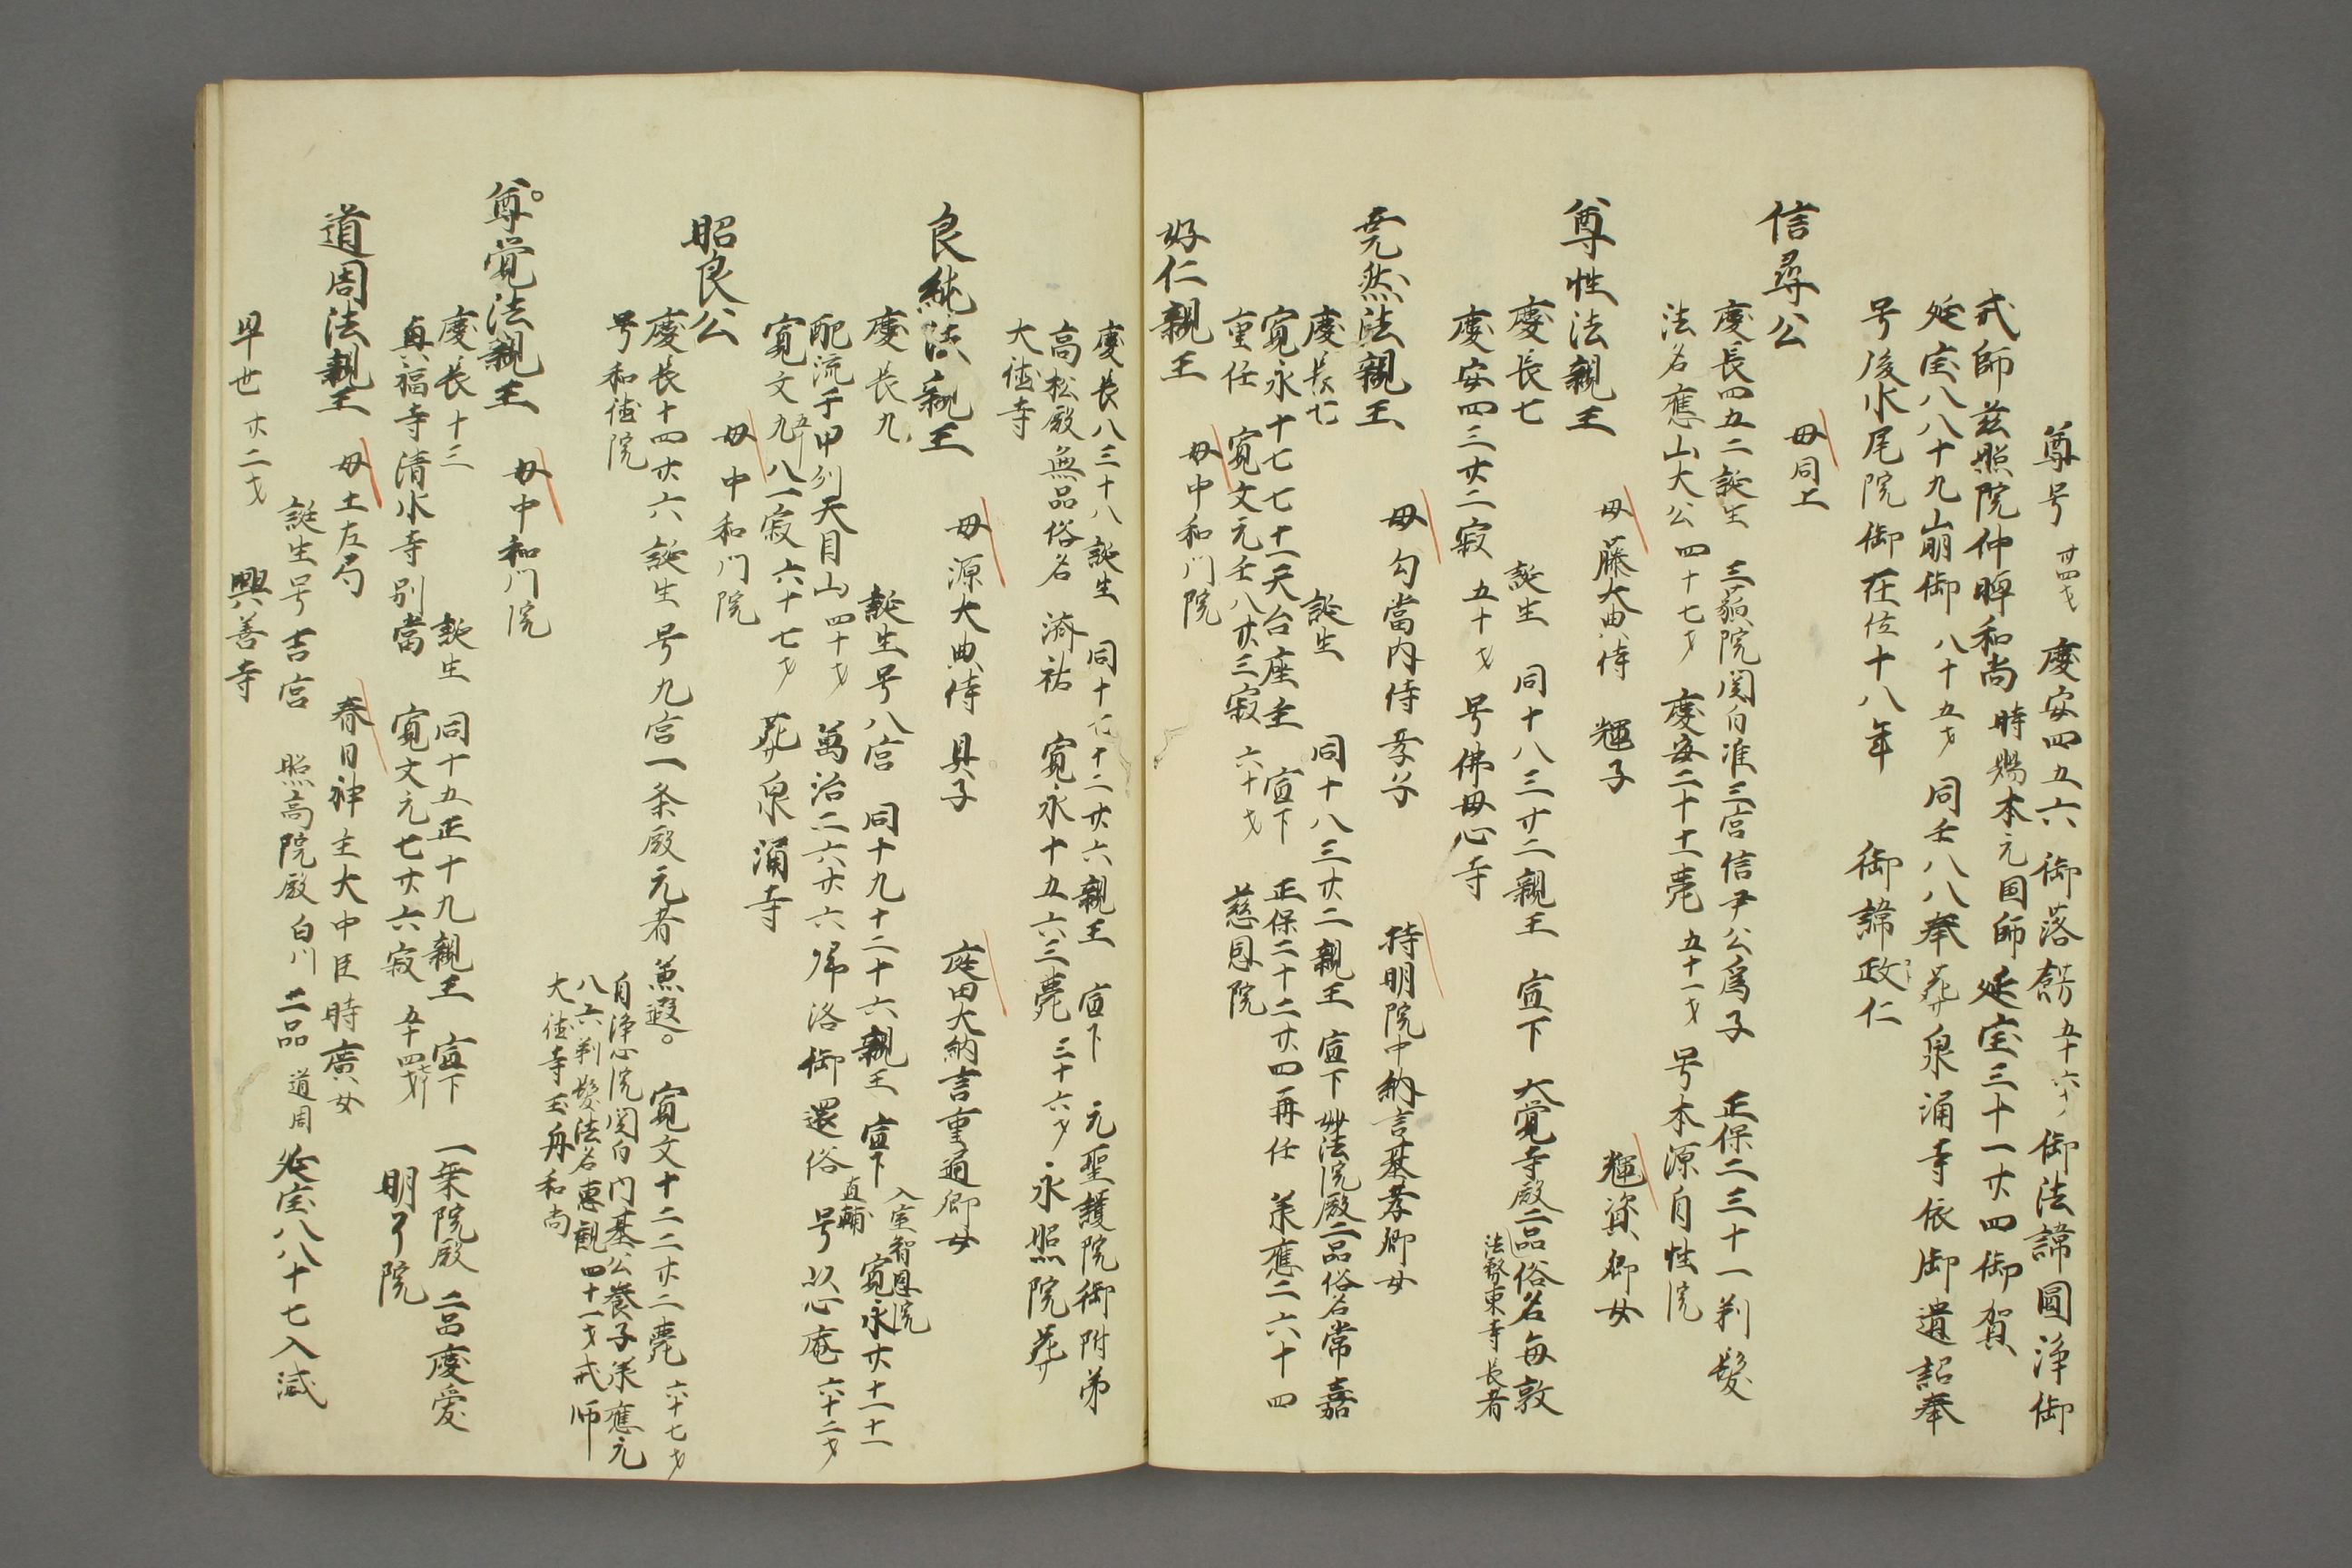 尊号 廿四才 慶安四五六 御落餝 五十六才 御法諱圓浄御
戒師茲照院仲晫和尚 時賜本元国師 延宝三十一廿四御賀
延宝八八十九崩御 八十五才 同壬八八奉葬泉涌寺依御遺詔奉
号後水尾院御在位十八年 御諱政仁
信尋公 母同上
慶長四五二誕生 三藐院関白准三宮信尹公為子 正保二三十一剃髪
法名應山大公 四十七才 慶安二十十一薨 五十一才 号本源自性院
尊性法親王 母藤大典侍 輝子 輝資卿女
慶長七 誕生 同十八三廿二親王 宣下 大覚寺殿二品俗名毎敦
法務東寺長者
慶安四三廿二寂 五十才 号佛母心寺
尭然法親王 母勾當内侍孝子 持明院中納言基孝卿女
慶長七 誕生 同十八三廿二親王 宣下 妙法院殿二品俗名常嘉
寛永十七七十一天台座主 宣下 正保二十二廿四再任 承應二六十四
重任 寛文元壬八廿三寂 六十才 慈恩院
好仁親王 母中和門院
慶長八三十八誕生 同十七十二廿六親王 宣下 元聖護院御附弟
高松殿無品俗名 済祐 寛永十五六三薨 三十六才 永照院葬
大徳寺
良純法親王 母源大典侍 具子 庭田大納言重通卿女
慶長九 誕生号八宮 同十九十二十六親王 宣下 入室智恩院 直輔 寛永廿十一十一
配流于甲刕天目山 四十才 萬治二六廿六帰洛御還俗 号以心庵 六十二才
寛文九八一寂 六十七才 葬泉涌寺
昭良公 母中和門院
慶長十四廿六誕生号九宮一条殿元者兼遐。 寛文十二二廿二薨 六十七才
号和徳院
自浄心院関白内基公養子承應元
八六剃髪法名恵観 四十一才 戒师
大徳寺玉舟和尚
尊覚法親王 母中和門院
慶長十三 誕生 同十五正十九親王 宣下 一乗院殿 二品慶愛
興福寺清水寺別當 寛文元七廿六寂 五十四才 明了院
道周法親王 母土左局 春日神主大中臣時廣女
誕生号吉宮 照高院殿白川 二品 道周 延宝八八十七入滅
早世 廿二才 興善寺